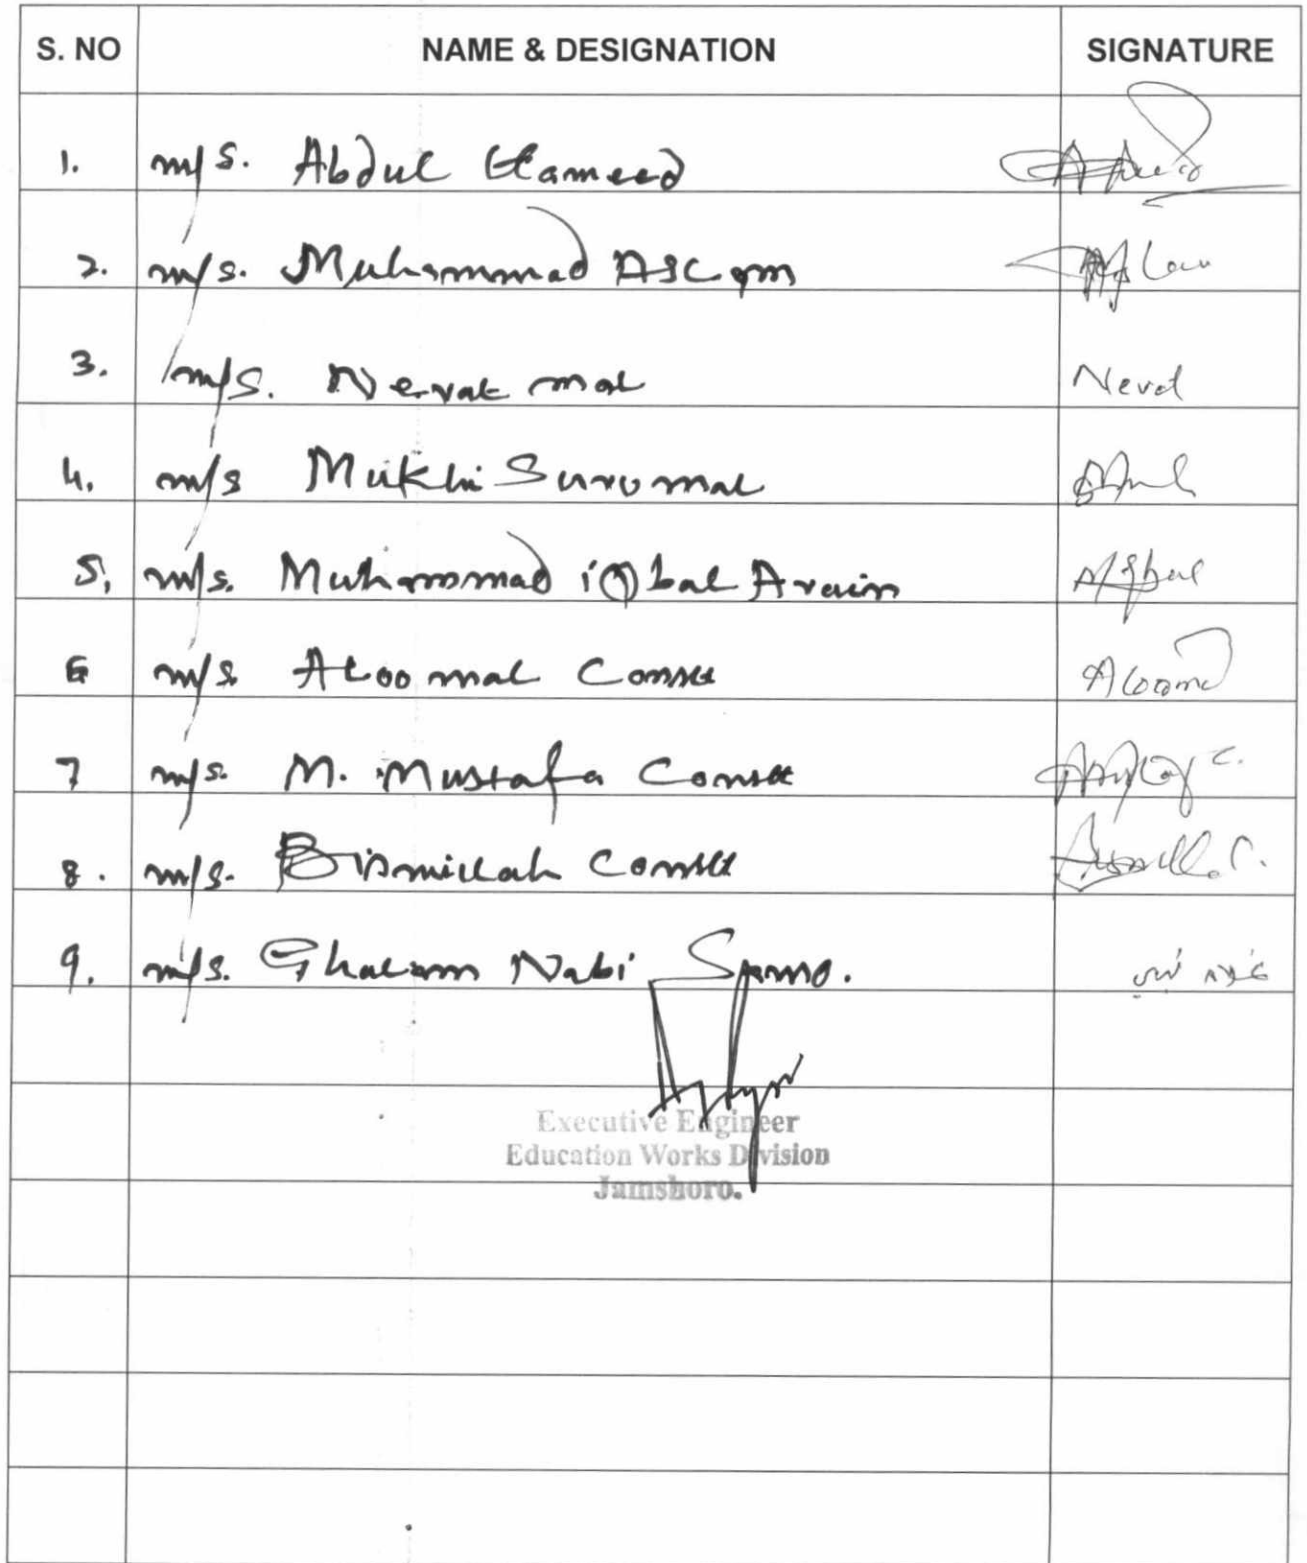 S. NO NAME & DESIGNATION SIGNATURE
1. m/s. Abdul Hameed
2. m/s. Muhammad Aslam
3. m/s. Nevat mal Nevat
4. m/s Mukhi Surumal
5. m/s. Muhammad iqbal Arain MIqbal
6 m/s. Aloomal Const Aloomal
7 m/s. M. Mustafa Const
8. m/s. Bismillah Const
9. m/s. Ghulam Nabi Samo. غلام نبي
Executive Engineer
Education Works Division
Jamshoro.